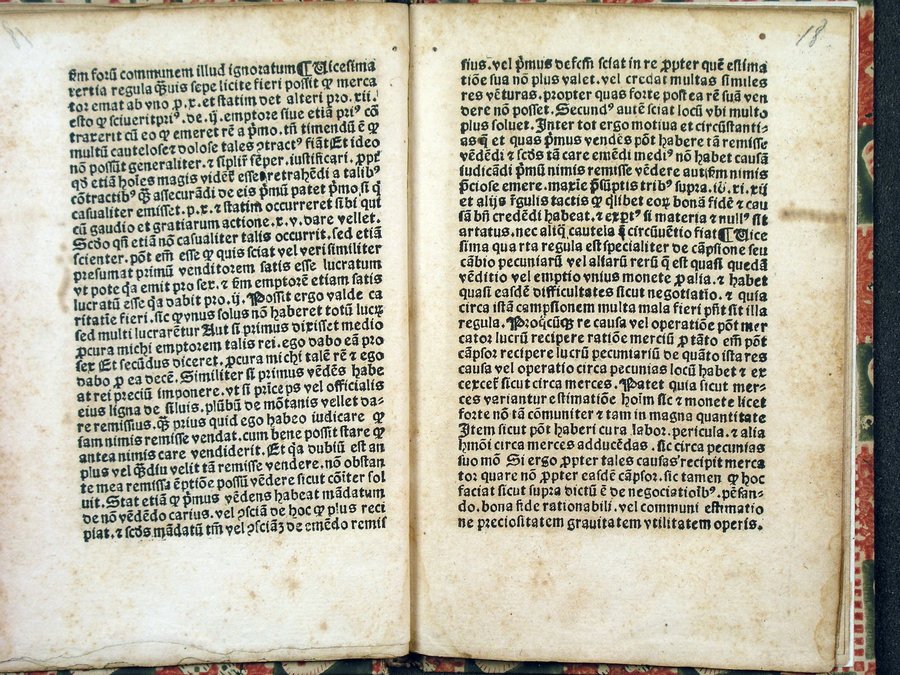 ẜm forū communem illud ignoratum ¶ Uicesima
tertia regula q̄uis sepe licite fieri possit ꝙ merca
tor emat ab vno ꝓ .x. et statim det alteri pro .xii.
esto ꝙ sciuerit priꝰ .de .ij. emptore siue etiā priꝰ cō
traxerit cū eo ꝙ emeret rē a p̄mo. tn̄ timendū ē ꝙ
multū cautelose ⁊ dolose tales ɔtractꝰ fiāt Et ideo
nō possūt generaliter ⁊ sipl̄ir sēper .iustificari .
qd̄ etiā hoīes magis vidēt esse retrahēdi a talibꝰ
cōtractibꝰ q̄ assecurādi de eis p̄mū patet p̄mo .si ꝗ
casualiter emisset .ꝓ .x. ⁊ statim occurreret sibi qui
cū gaudio et gratiarum actione .x.v. dare vellet.
Scd̄o qn̄ etiā nō casualiter talis occurrit. sed etiā
scienter. pōt em̄ esse ꝙ quis sciat vel verisimiliter
presumat primū venditorem satis esse lucratum
vt pote ꝗa emit pro sex. ⁊ ẜm emptorē etiam satis
lucratū esse ꝗa dabit pro .ij. Possit ergo valde ca
ritatīe fieri .sic ꝙ vnus solus nō haberet totū lucꝝ
sed multi lucrarētur Aut si primus dixisset medio
ꝓcura michi emptorem talis rei. ego dabo eā pro
sex Et secūdus diceret. ꝓcura michi talē rē ⁊ ego
dabo ꝓ ea decē. Similiter si primus vēdēs habe
at rei preciū imponere. vt si prīceps vel officialis
eius ligna de siluis. plūbū de mōtanis vellet da-
re remissius. q̄ prius quid ego habeo iudicare ꝙ
iam nimis remisse vendat. cum bene possit stare ꝙ
antea nimis care vendiderit. Et ꝗa dubiū est an
plus vel q̄diu velit tā remisse vendere. nō obstan
te mea remissa ēptiōe possū vēdere sicut cōiter sol
uit. Stat etiā ꝙ p̄mus vēdens habeat mādatum
de nō vēdēdo carius. vel ɔsciā de hoc ꝙ plus reci
piat. ⁊ scd̄s mādatū tm̄ vel ɔsciāȝ de emēdo remis
18
sius. vel p̄mus defectū sciat in re ꝓpter quē estima
tiōe sua nō plus valet. vel credat multas similes
res vēturas. propter quas forte postea rē suā ven
dere nō posset. Secundꝰ autē sciat locū vbi multo
plus soluet. Inter tot ergo motiua et circūstanti-
as et quas p̄mus vendēs pōt habere tā remisse
vēdēdi ⁊ scd̄s tā care emēdi mediꝰ nō habet causā
iudicādi p̄mū nimis remisse vēdere aut scd̄m nimis
p̄ciose emere. maxīe p̄suptis tribꝰ supra .xi. xii
et alijs regulis tactis ꝙ qͥlibet eoꝝ bonā fidē ⁊ cau
sā bn̄ credēdi habeat. ⁊ si materia ⁊ nullꝰ sit
artatus. nec aliꝗ cautela circūuētio fiat ¶ Uice
sima quarta regula est specialiter de cāpsione seu
cābio pecuniarū vel aliarū rerū ꝗ est quasi quedā
vēditio vel emptio vnius monete ꝓ alia. ⁊ habet
quasi easdē difficultates sicut negotiatio. ⁊ quia
circa istā campsionem multa mala fieri pn̄t sit illa
regula. Proꝗcūꝙ re causa vel operatiōe pōt mer
cator lucrū recipere ratiōe merciū ꝓ tāto em̄ pōt
cāpsor recipere lucrū pecuniariū de quāto ista res
causa vel operatio circa pecunias locū habet ⁊ ex
cercet̄ sicut circa merces. Patet quia sicut mer-
ces variantur estimatiōe hoīm sic ⁊ monete licet
forte nō tā cōmuniter ⁊ tam in magna quantitate
Item sicut pōt haberi cura labor. pericula. ⁊ alia
hmōi circa merces adducēdas .sic circa pecunias
suo mō Si ergo ꝓpter tales causas recipit merca
tor quare nō ꝓpter easdē cāpsor. sic tamen ꝙ hoc
faciat sicut supra dictū ē de negociatioībꝰ. pēsan-
do. bona fide rationabili. vel communi estimatio
ne preciositatem grauitatem vtilitatem operis.